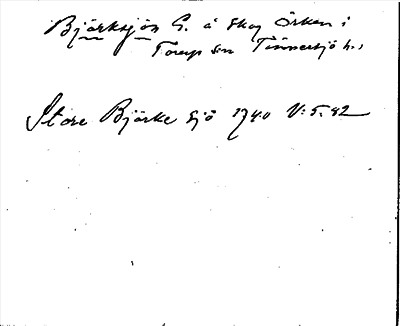 Björksjön S. å Skog Örken i
Torup sn Tönnersjö h.,
Store Björke sjö 1740 V:5.82